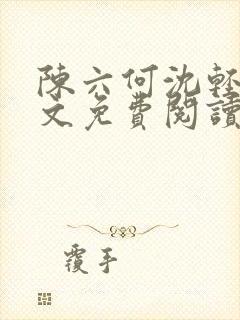 陳六何沈輕
文免費閱讀
覆手